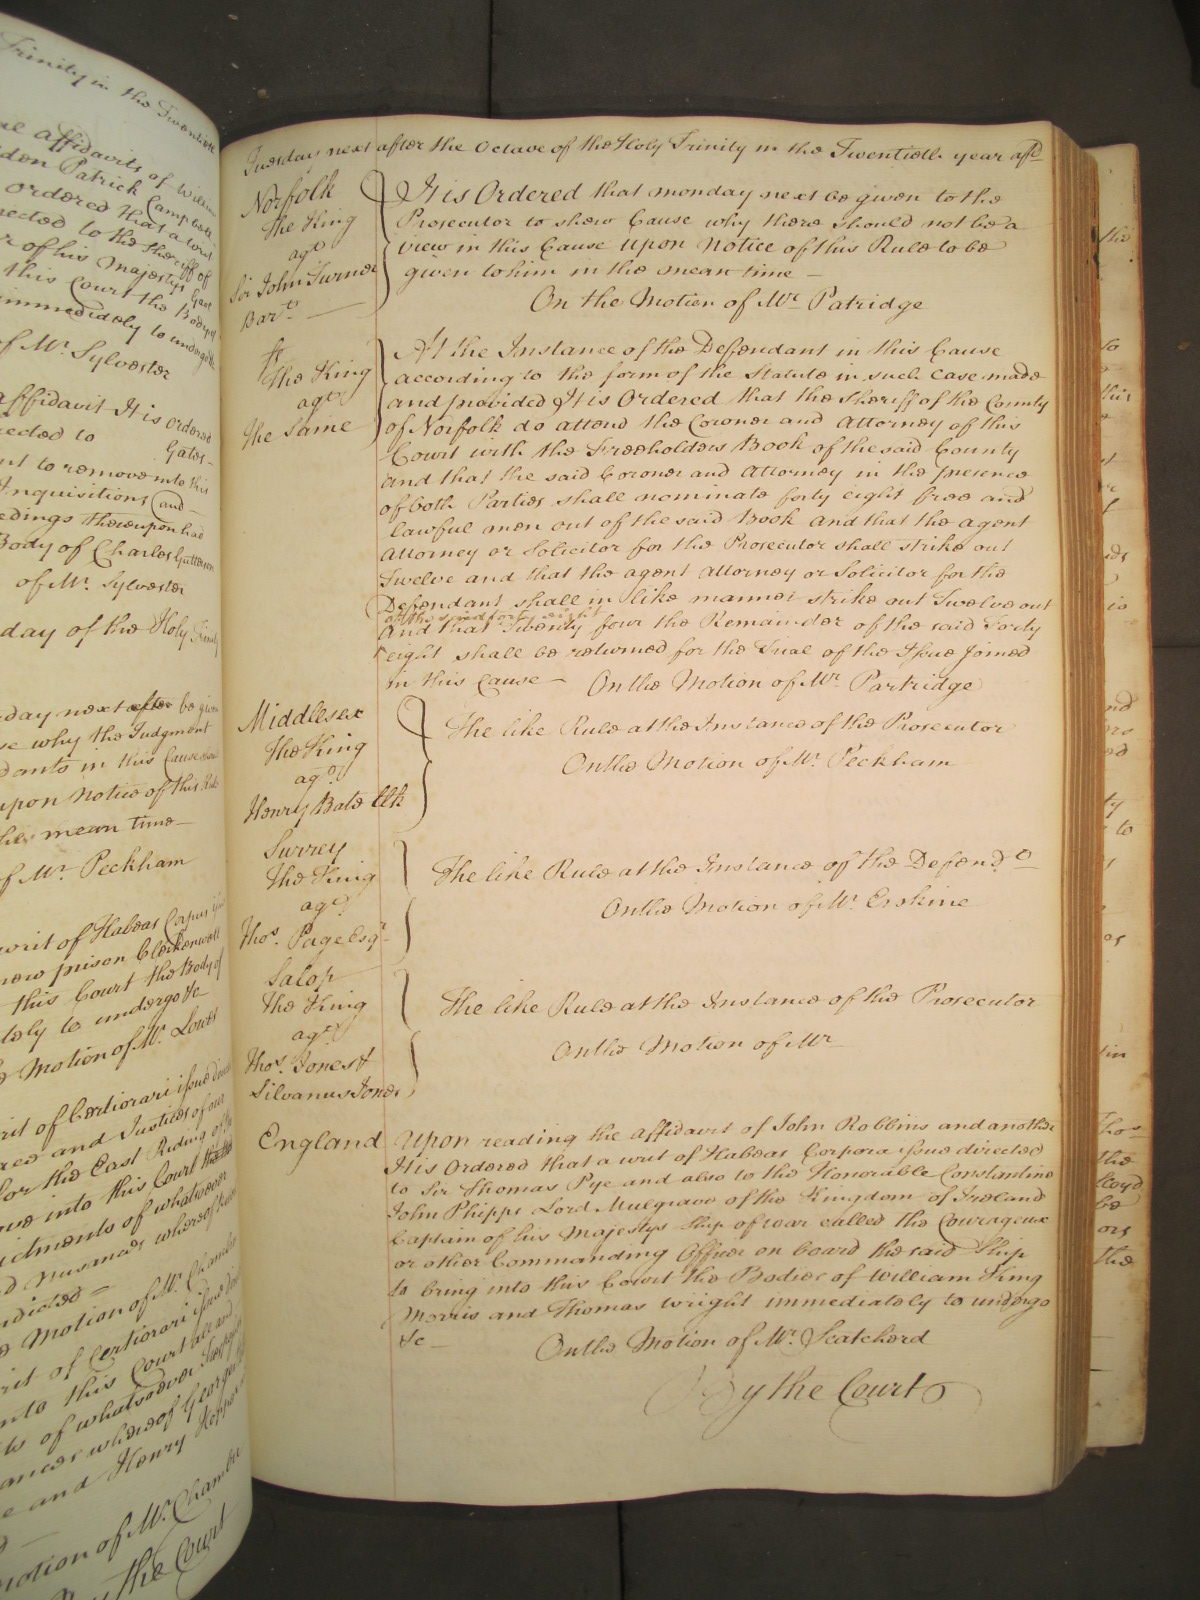 Trinity in the Twentieth
affidavits of William
Patrick Campbell
ordered that a writ
directed to the Sheriff of
of his Majestys Gaol
this Court the Body of
immediately to undergo &c
of Mr. Sylvester
affidavit It is ordered
directed to Gates-
to remove into this
Inquisitions and
thereupon had
Body of Charles
of Mr. Sylvester
day of the Holy Trinity
day next after be given
why the Judgment
in this Cause
upon notice of this Rule
the mean time
of Mr. Peckham
writ of Habeas Corpus
new prison Clerkenwell
this Court the Body of
to undergo &c
Motion of Mr. Lowes
writ of Certiorari issue
and Justices of our
for the East Riding of
into this Court
of whatsoever
whereof
Motion of Mr. Chambre
writ of Certiorari issue
into this Court all and
of whatsoever
whereof George
and Henry
Motion of Mr. Chambre
By the Court
Tuesday next after the Octave of the Holy Trinity in the Twentieth year affd
Norfolk
The King
agt
Sir John Turner
Bart.
It is Ordered that monday next be given to the
Prosecutor to shew Cause why there should not be a
view in this Cause upon notice of this Rule to be
given to him in the mean time
On the Motion of Mr. Patridge
The King
agt
the Same
At the Instance of the Defendant in this Cause
according to the form of the Statute in such case made
and provided It is Ordered that the Sheriff of the County
of Norfolk do attend the Coroner and Attorney of this
Court with the Freeholders Book of the said County
and that the said Coroner and Attorney in the presence
of both Parties shall nominate forty eight free and
lawful men out of the said Book and that the agent
Attorney or Solicitor for the Prosecutor shall strike out
Twelve and that the agent Attorney or Solicitor for the
Defendant shall in like manner strike out Twelve out
of the said forty eight
and that Twenty four the Remainder of the said Forty
eight shall be returned for the Trial of the Issue Joined
in this Cause - On the Motion of Mr. Partridge
Middlesex
The King
agt
Henry Bate Clk
The like Rule at the Instance of the Prosecutor
On the Motion of Mr. Peckham
Surrey
The King
agt
Thos. Page Esqr.
The like Rule at the Instance of the Defendt.
On the Motion of Mr. Erskine
Salop
The King
agt
Thos. Jones &
Silvanus Jones
The like Rule at the Instance of the Prosecutor
On the Motion of Mr
England
Upon reading the affidavit of John Robbins and another
It is Ordered that a writ of Habeas Corpora issue directed
to Sir Thomas Pye and also to the Honorable Constantine
John Phipps Lord Mulgrave of the Kingdom of Ireland
Captain of his Majestys Ship of war called the Courageux
or other Commanding Officer on board the said Ship
to bring into this Court the Bodies of William King
Morris and Thomas Wright immediately to undergo
&c - On the Motion of Mr. Scatcherd
By the Court